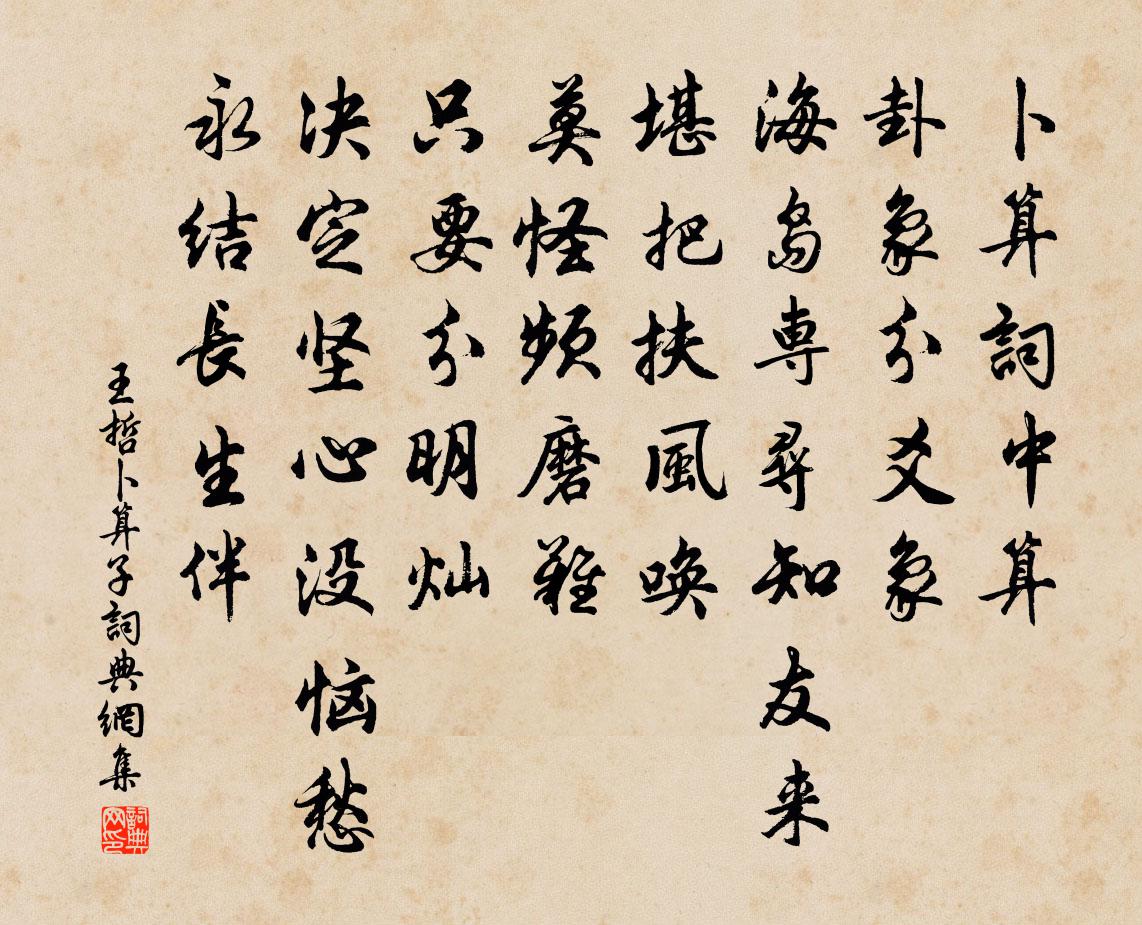 卜算詞中算
卦象分爻象
海島専尋知友来
堪把扶風唤
莫怪频磨難
只要分明灿
决定坚心没恼愁
永结長生伴
王哲卜算子詞典網集
詞典网印